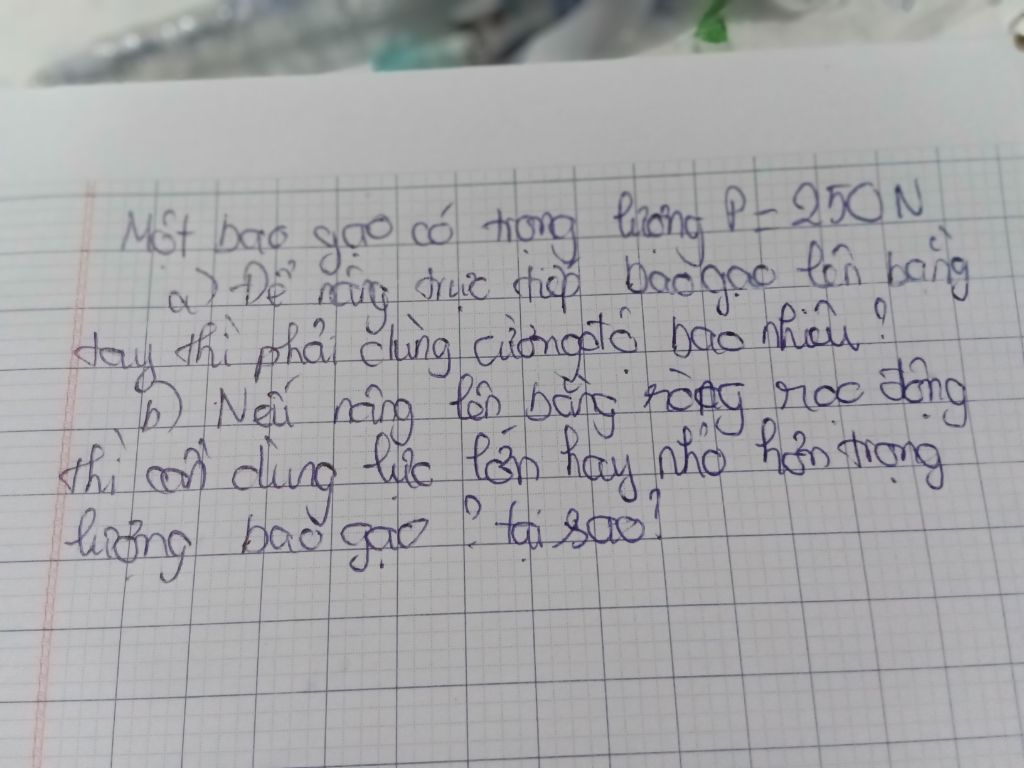 Một bao gạo có trọng lượng P = 250N
a) Để nâng trực tiếp bao gạo lên bằng
tay thì phải dùng cường độ bao nhiêu?
b) Nếu nâng lên bằng ròng rọc động
thì cần dùng lực lớn hay nhỏ hơn trọng
lượng bao gạo? tại sao?